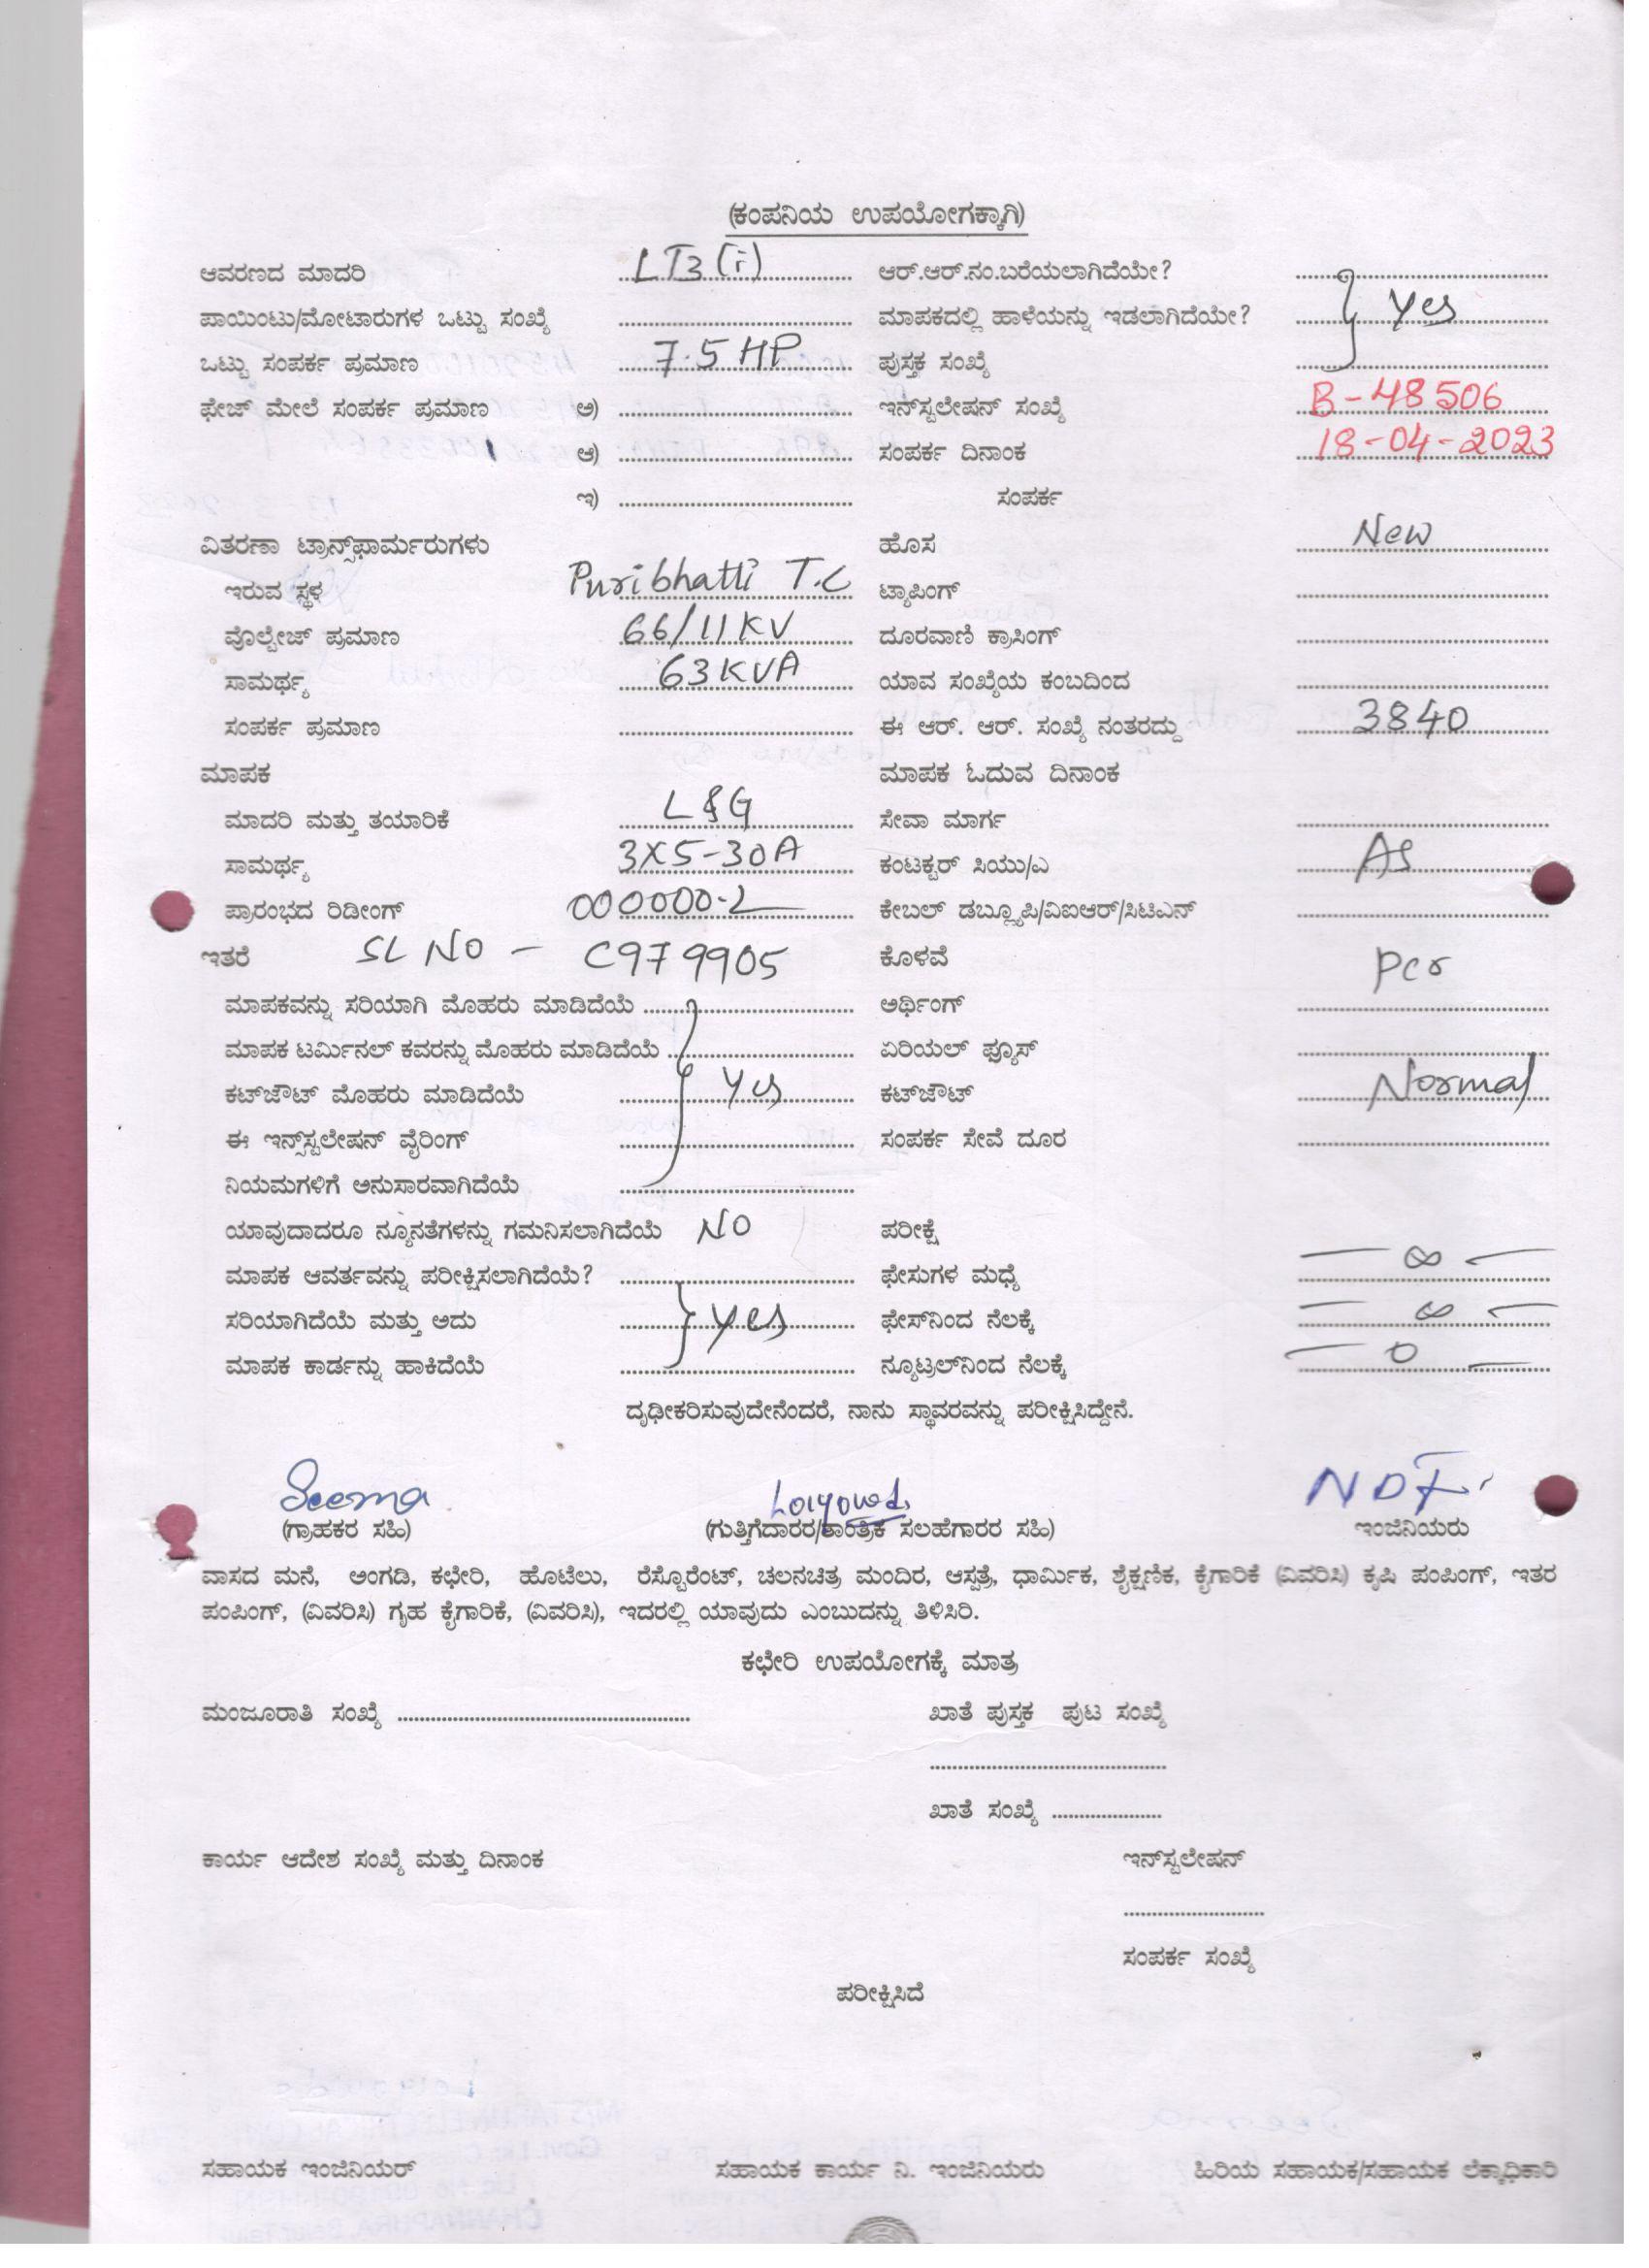 (ಕಂಪನಿಯ ಉಪಯೋಗಕ್ಕಾಗಿ)
ಆವರಣದ ಮಾದರಿ LT3(i) ಆರ್.ಆರ್.ನಂ.ಬರೆಯಲಾಗಿದೆಯೇ?
ಪಾಯಿಂಟು/ಮೋಟಾರುಗಳ ಒಟ್ಟು ಸಂಖ್ಯೆ ಮಾಪಕದಲ್ಲಿ ಹಾಳೆಯನ್ನು ಇಡಲಾಗಿದೆಯೇ? Yes
ಒಟ್ಟು ಸಂಪರ್ಕ ಪ್ರಮಾಣ 7.5 HP ಪುಸ್ತಕ ಸಂಖ್ಯೆ
ಫೇಜ್ ಮೇಲೆ ಸಂಪರ್ಕ ಪ್ರಮಾಣ ಅ) ಇನ್‌ಸ್ಟಲೇಷನ್ ಸಂಖ್ಯೆ B-48506
ಆ) ಸಂಪರ್ಕ ದಿನಾಂಕ 18-04-2023
ಇ) ಸಂಪರ್ಕ
ವಿತರಣಾ ಟ್ರಾನ್ಸ್‌ಫಾರ್ಮರುಗಳು ಹೊಸ New
ಇರುವ ಸ್ಥಳ Puribhatti T.C ಟ್ಯಾಪಿಂಗ್
ವೊಲ್ಟೇಜ್ ಪ್ರಮಾಣ 66/11KV ದೂರವಾಣಿ ಕ್ರಾಸಿಂಗ್
ಸಾಮರ್ಥ್ಯ 63KVA ಯಾವ ಸಂಖ್ಯೆಯ ಕಂಬದಿಂದ
ಸಂಪರ್ಕ ಪ್ರಮಾಣ ಈ ಆರ್. ಆರ್. ಸಂಖ್ಯೆ ನಂತರದ್ದು 3840
ಮಾಪಕ ಮಾಪಕ ಓದುವ ದಿನಾಂಕ
ಮಾದರಿ ಮತ್ತು ತಯಾರಿಕೆ L&G ಸೇವಾ ಮಾರ್ಗ
ಸಾಮರ್ಥ್ಯ 3X5-30A ಕಂಟಕ್ಟರ್ ಸಿಯು/ಎ As
ಪ್ರಾರಂಭದ ರಿಡೀಂಗ್ 000000.2 ಕೇಬಲ್ ಡಬ್ಲ್ಯೂಪಿ/ವಿಐಆರ್/ಸಿಟಿಎನ್
ಇತರೆ SL NO - C979905 ಕೊಳವೆ per
ಮಾಪಕವನ್ನು ಸರಿಯಾಗಿ ಮೊಹರು ಮಾಡಿದೆಯೆ ಅರ್ಥಿಂಗ್
ಮಾಪಕ ಟರ್ಮಿನಲ್ ಕವರನ್ನು ಮೊಹರು ಮಾಡಿದೆಯೆ ಏರಿಯಲ್ ಫ್ಯೂಸ್
ಕಟ್‌ಔಟ್ ಮೊಹರು ಮಾಡಿದೆಯೆ Yes ಕಟ್‌ಔಟ್ Normal
ಈ ಇನ್ಸ್‌ಸ್ಟಲೇಷನ್ ವೈರಿಂಗ್ ಸಂಪರ್ಕ ಸೇವೆ ದೂರ
ನಿಯಮಗಳಿಗೆ ಅನುಸಾರವಾಗಿದೆಯೆ
ಯಾವುದಾದರೂ ನ್ಯೂನತೆಗಳನ್ನು ಗಮನಿಸಲಾಗಿದೆಯೆ NO ಪರೀಕ್ಷೆ
ಮಾಪಕ ಆವರ್ತವನ್ನು ಪರೀಕ್ಷಿಸಲಾಗಿದೆಯೆ? ಫೇಸುಗಳ ಮಧ್ಯೆ — ∞ —
ಸರಿಯಾಗಿದೆಯೆ ಮತ್ತು ಅದು Yes ಫೇಸ್‌ನಿಂದ ನೆಲಕ್ಕೆ — ∞ —
ಮಾಪಕ ಕಾರ್ಡನ್ನು ಹಾಕಿದೆಯೆ ನ್ಯೂಟ್ರಲ್‌ನಿಂದ ನೆಲಕ್ಕೆ — 0 —
ದೃಢೀಕರಿಸುವುದೇನೆಂದರೆ, ನಾನು ಸ್ಥಾವರವನ್ನು ಪರೀಕ್ಷಿಸಿದ್ದೇನೆ.
Seema
(ಗ್ರಾಹಕರ ಸಹಿ) (ಗುತ್ತಿಗೆದಾರರ/ತಾಂತ್ರಿಕ ಸಲಹೆಗಾರರ ಸಹಿ) ಇಂಜಿನಿಯರು
ವಾಸದ ಮನೆ, ಅಂಗಡಿ, ಕಛೇರಿ, ಹೊಟೆಲು, ರೆಸ್ಟೊರೆಂಟ್, ಚಲನಚಿತ್ರ ಮಂದಿರ, ಆಸ್ಪತ್ರೆ, ಧಾರ್ಮಿಕ, ಶೈಕ್ಷಣಿಕ, ಕೈಗಾರಿಕೆ (ವಿವರಿಸಿ) ಕೃಷಿ ಪಂಪಿಂಗ್, ಇತರ
ಪಂಪಿಂಗ್, (ವಿವರಿಸಿ) ಗೃಹ ಕೈಗಾರಿಕೆ, (ವಿವರಿಸಿ), ಇದರಲ್ಲಿ ಯಾವುದು ಎಂಬುದನ್ನು ತಿಳಿಸಿರಿ.
ಕಛೇರಿ ಉಪಯೋಗಕ್ಕೆ ಮಾತ್ರ
ಮಂಜೂರಾತಿ ಸಂಖ್ಯೆ ಖಾತೆ ಪುಸ್ತಕ ಪುಟ ಸಂಖ್ಯೆ
ಖಾತೆ ಸಂಖ್ಯೆ
ಕಾರ್ಯ ಆದೇಶ ಸಂಖ್ಯೆ ಮತ್ತು ದಿನಾಂಕ ಇನ್‌ಸ್ಟಲೇಷನ್
ಸಂಪರ್ಕ ಸಂಖ್ಯೆ
ಪರೀಕ್ಷಿಸಿದೆ
ಸಹಾಯಕ ಇಂಜಿನಿಯರ್ ಸಹಾಯಕ ಕಾರ್ಯ ನಿ. ಇಂಜಿನಿಯರು ಹಿರಿಯ ಸಹಾಯಕ/ಸಹಾಯಕ ಲೆಕ್ಕಾಧಿಕಾರಿ